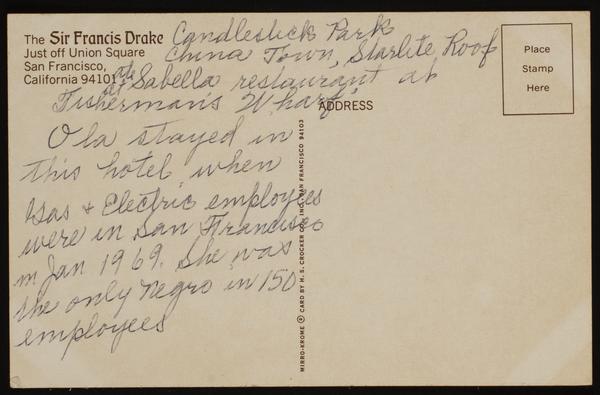 The Sir Francis Drake
Just off Union Square
San Francisco,
California 94101
Candlestick Park
China Town, Starlite Roof
ate
at Sabella restaurant at
Fisherman's Wharf,
Ola stayed in
this hotel when
Gas & Electric employees
were in San Francisco
in Jan 1969. She was
the only negro in 150
employees
Place
Stamp
Here
ADDRESS
MIRRO-KROME ® CARD BY H. S. CROCKER CO., INC., SAN FRANCISCO 94103